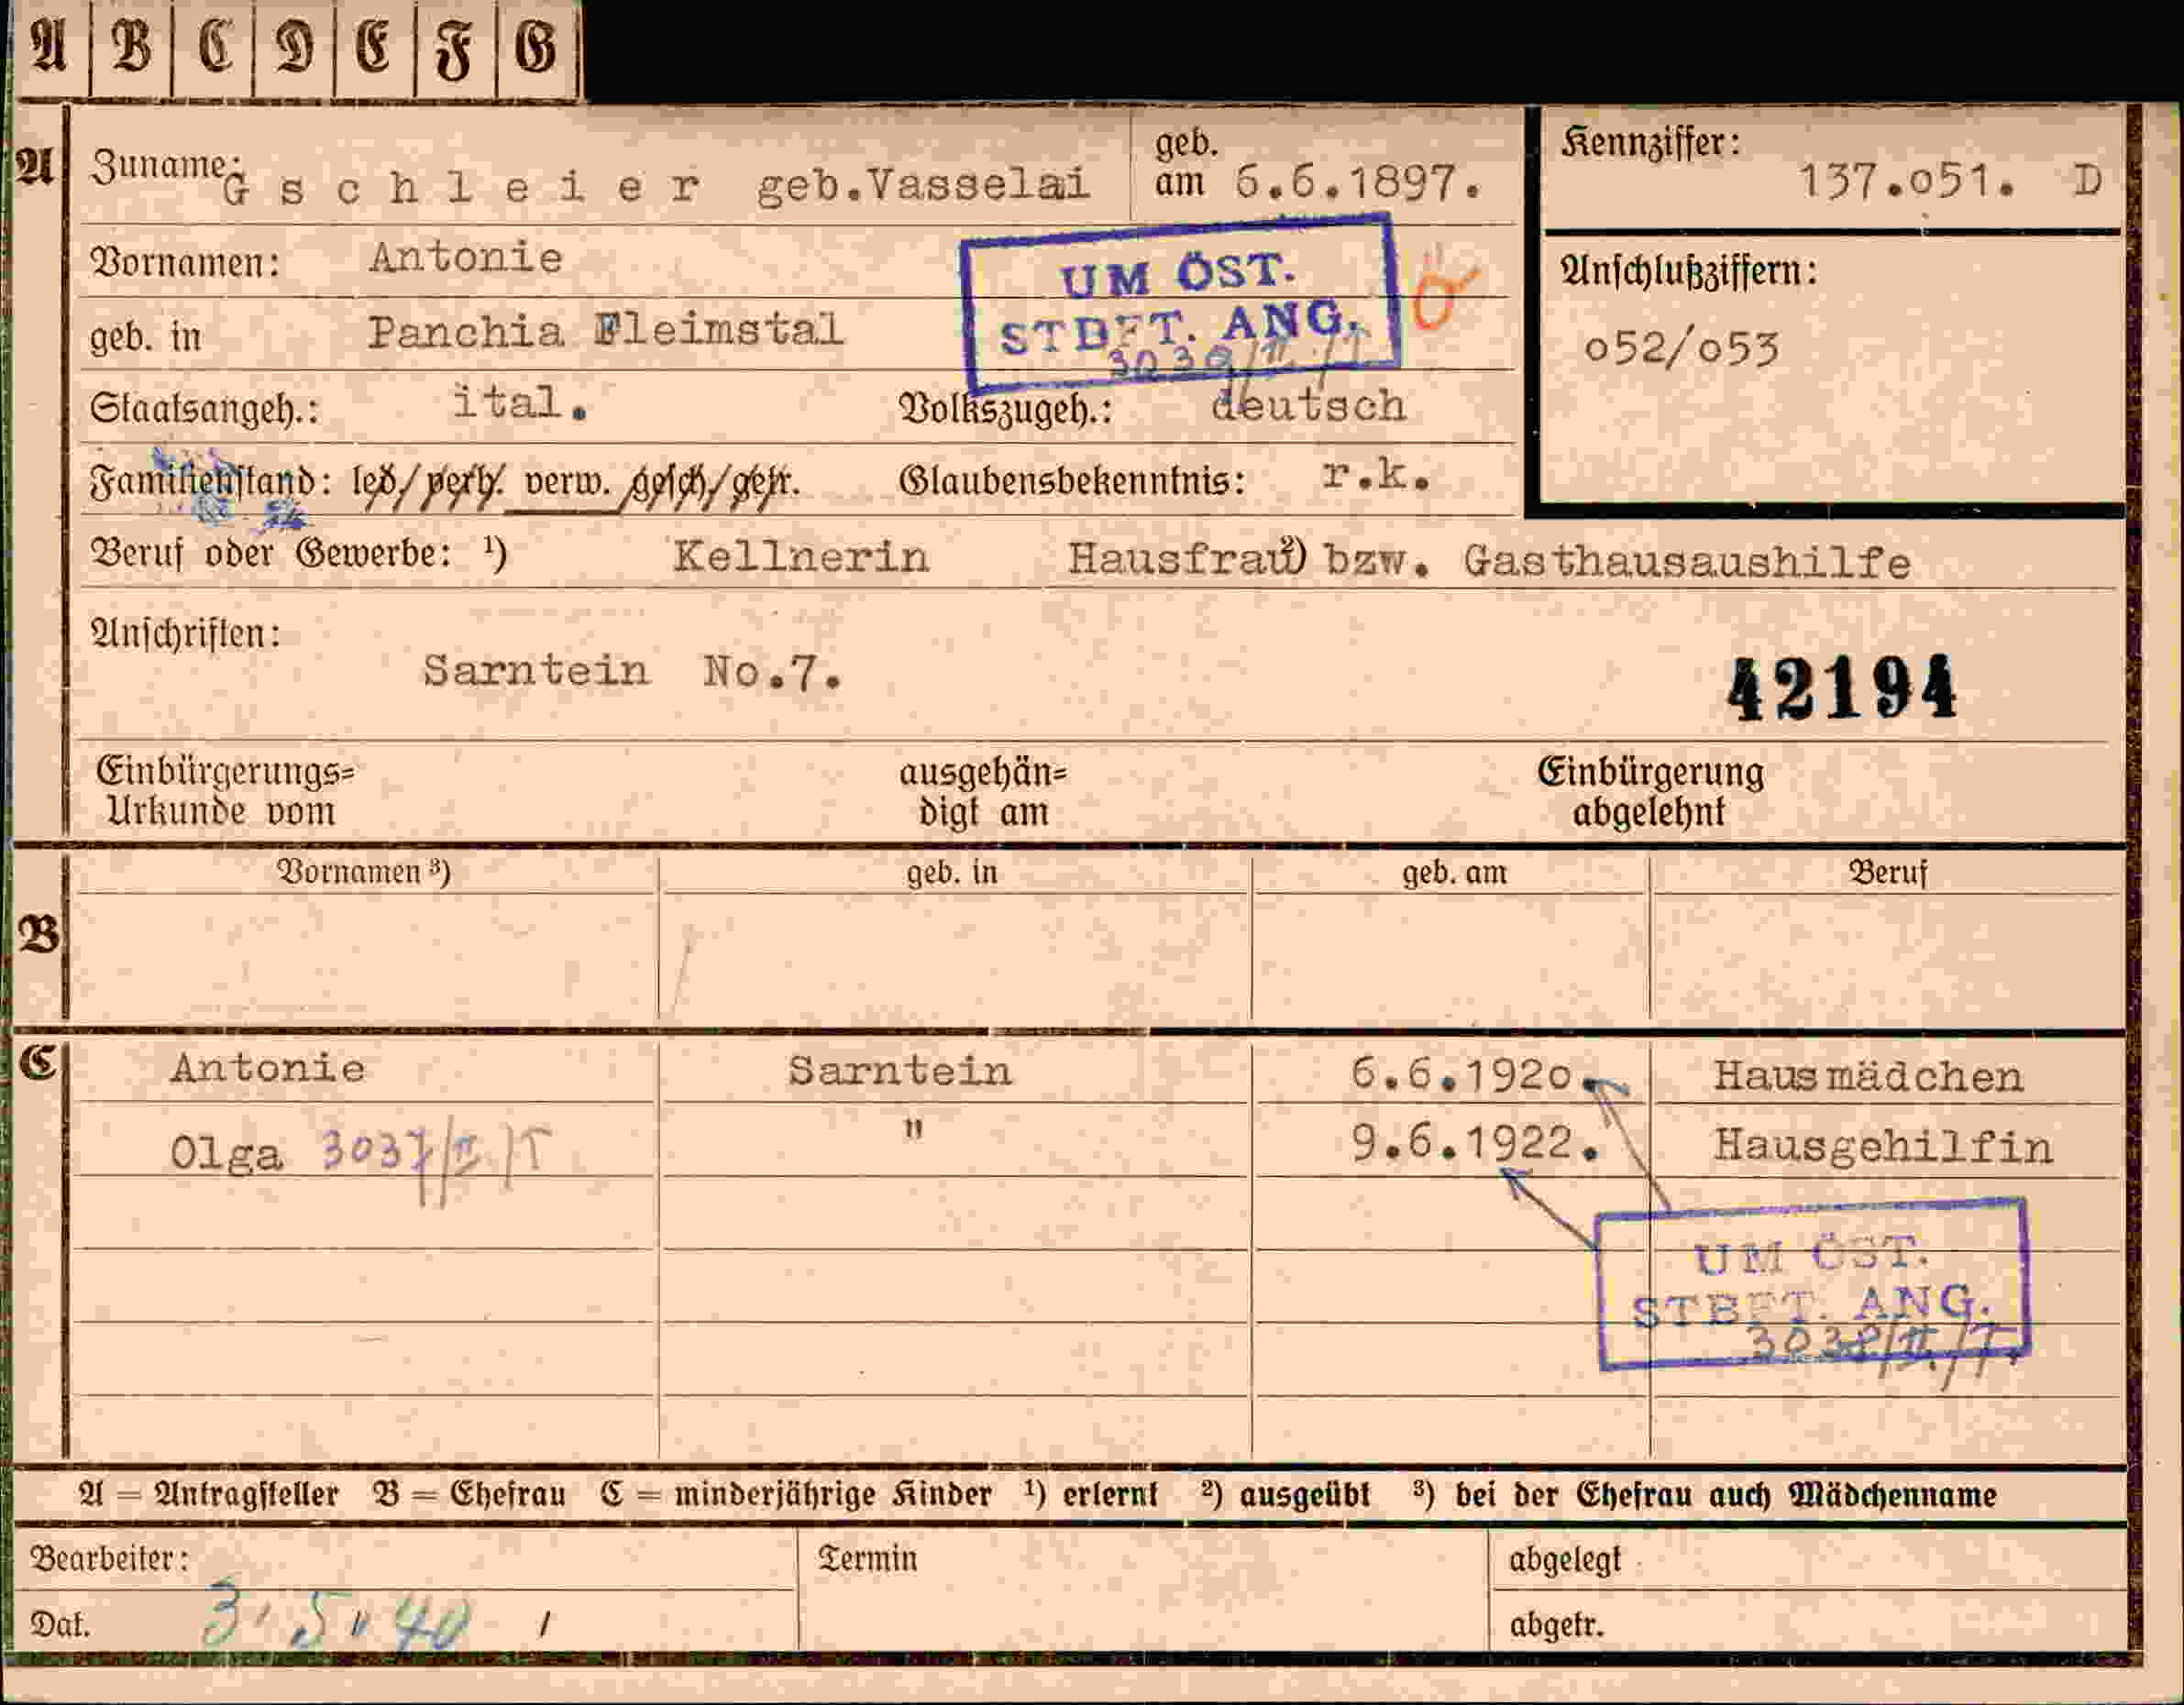 A B C D E F G
A Zuname: Gschleier geb.Vasselai geb. am 6.6.1897. Kennziffer: 137.o51. D
Vornamen: Antonie
UM ÖST. STBFT. ANG. Ö
Anschlußziffern: o52/o53
geb. in Panchia Fleimstal
Staatsangeh.: ital. Volkszugeh.: deutsch
Familienstand: led/verh. verw. gesch/getr. Glaubensbekenntnis: r.k.
Beruf oder Gewerbe: ¹) Kellnerin Hausfrau ²) bzw. Gasthausaushilfe
Anschriften:
Sarntein No.7.
42194
Einbürgerungs= ausgehän= Einbürgerung
Urkunde vom digt am abgelehnt
Vornamen ³) geb. in geb. am Beruf
B
C Antonie Sarntein 6.6.192o. Hausmädchen
Olga 3037/II/T " 9.6.1922. Hausgehilfin
UM ÖST.
STBFT. ANG.
3038/II/T.
A = Antragsteller B = Ehefrau C = minderjährige Kinder ¹) erlernt ²) ausgeübt ³) bei der Ehefrau auch Mädchenname
Bearbeiter: Termin abgelegt
Dat. 3. 5. 40 abgetr.